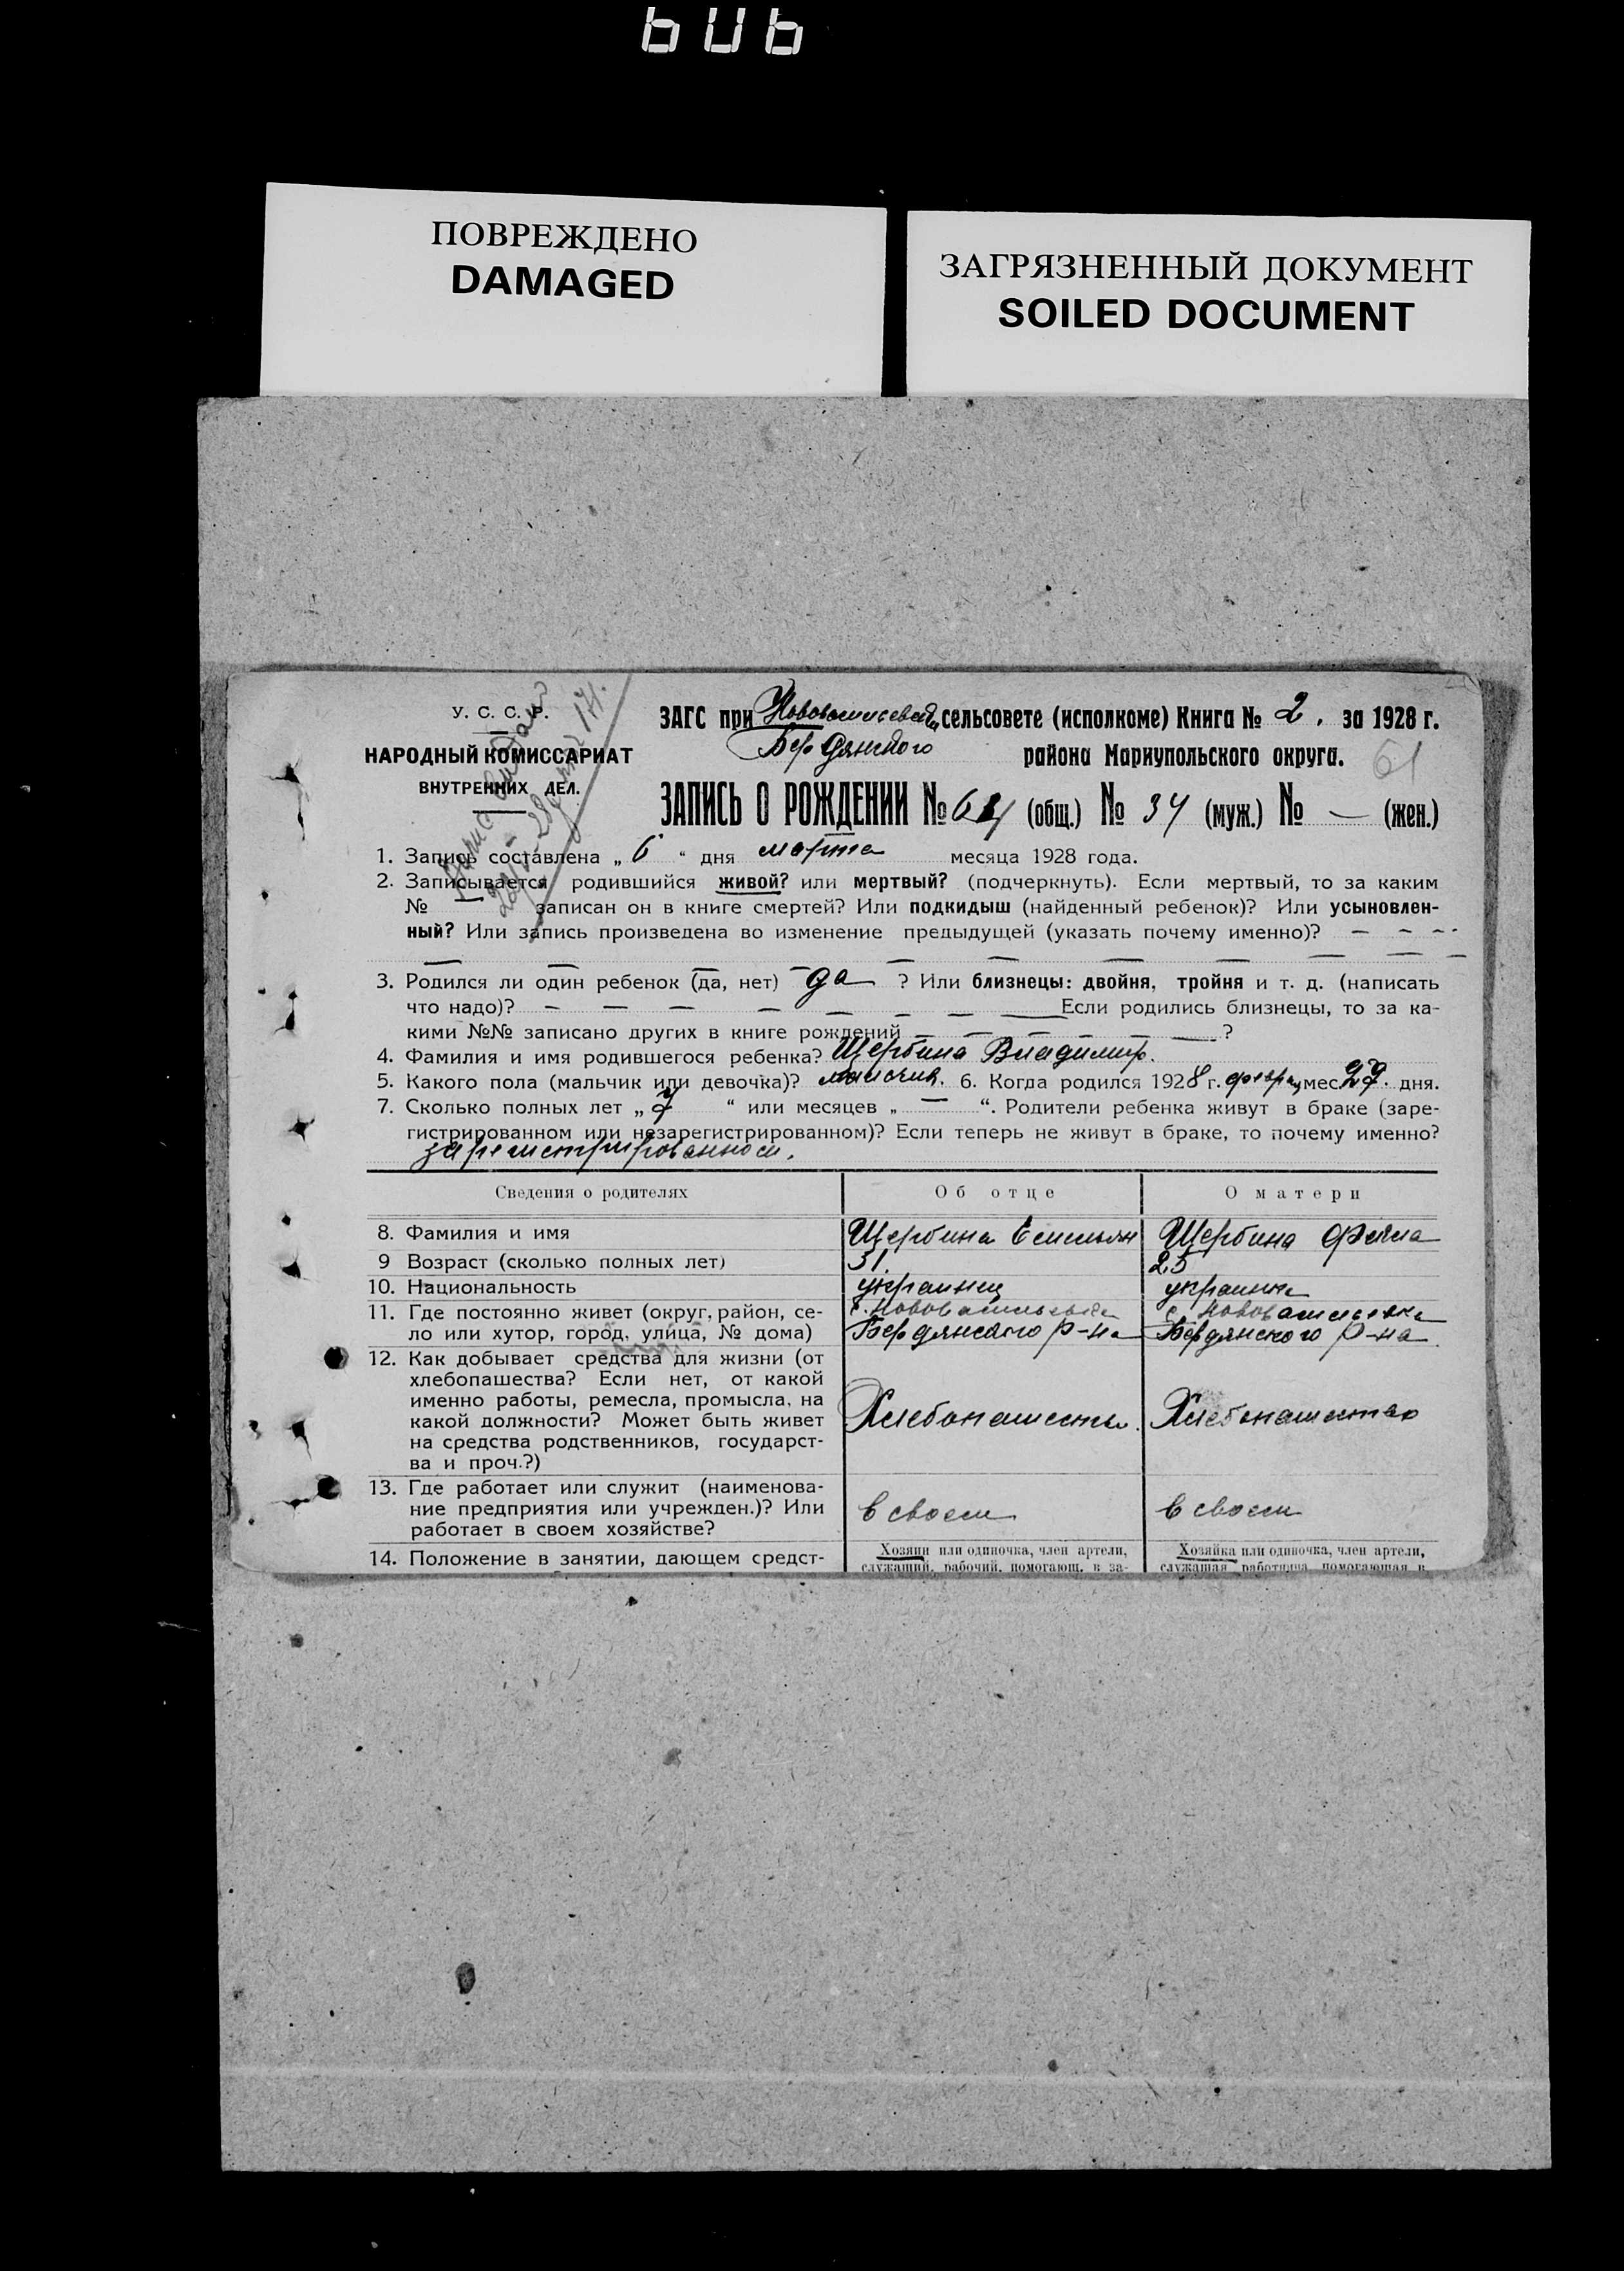 606
ПОВРЕЖДЕНО
DAMAGED
ЗАГРЯЗНЕННЫЙ ДОКУМЕНТ
SOILED DOCUMENT
У. С. С. Р.
НАРОДНЫЙ КОМИССАРИАТ
ВНУТРЕННИХ ДЕЛ.
ЗАГС при сельсовете (исполкоме) Книга № 2. за 1928 г.
Бердянского района Мариупольского округа.
61
ЗАПИСЬ О РОЖДЕНИИ № (общ.) № 34 (муж.) № — (жен.)
1. Запись составлена „ 6 “ дня марта месяца 1928 года.
2. Записывается родившийся живой? или мертвый? (подчеркнуть). Если мертвый, то за каким
№ — записан он в книге смертей? Или подкидыш (найденный ребенок)? Или усыновлен-
ный? Или запись произведена во изменение предыдущей (указать почему именно)? — — —
3. Родился ли один ребенок (да, нет) да ? Или близнецы: двойня, тройня и т. д. (написать
что надо)? — — — — — — — — Если родились близнецы, то за ка-
кими №№ записано других в книге рождений — — — — — ?
4. Фамилия и имя родившегося ребенка? Щербина Владимир.
5. Какого пола (мальчик или девочка)? мальчик. 6. Когда родился 1928 г. мес. дня.
7. Сколько полных лет „ “ или месяцев „ — “. Родители ребенка живут в браке (заре-
гистрированном или незарегистрированном)? Если теперь не живут в браке, то почему именно?
зарегистрированном.
Сведения о родителях Об отце О матери
8. Фамилия и имя Щербина Емельян Щербина Фекла
9 Возраст (сколько полных лет) 31. 25
10. Национальность украинец украинка
11. Где постоянно живет (округ, район, се- с. Нововасильевка с. Нововасильевка
ло или хутор, город, улица, № дома) Бердянского р-на Бердянского р-на
12. Как добывает средства для жизни (от
хлебопашества? Если нет, от какой
именно работы, ремесла, промысла, на
какой должности? Может быть живет Хлебопашество. Хлебопашество
на средства родственников, государст-
ва и проч.?)
13. Где работает или служит (наименова-
ние предприятия или учрежден.)? Или в своем в своем
работает в своем хозяйстве?
14. Положение в занятии, дающем средст- Хозяин или одиночка, член артели, Хозяйка или одиночка, член артели,
служащий, рабочий, помогающ. в за- служащая работница помогающая в